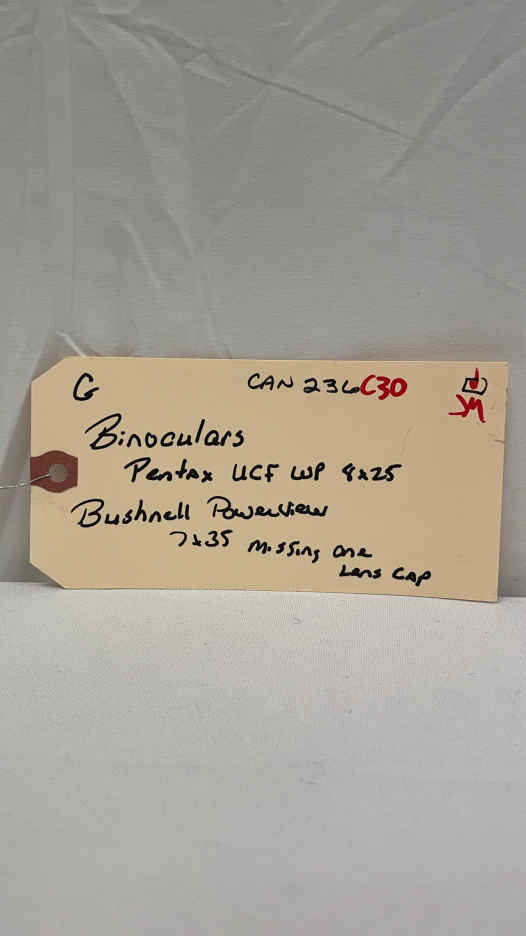 G CAN 236 C30
JM
Binoculars
Pentax UCF WP 8x25
Bushnell Powerview
7x35 Missing one
Lens Cap